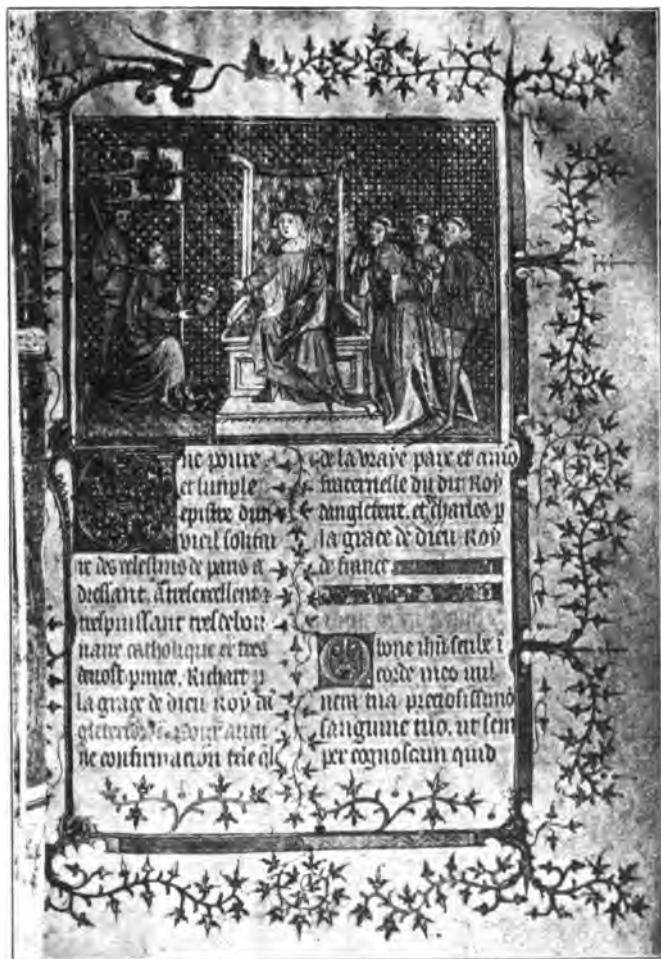 ne poure
et simple
epistre dun
vieil solitai
re des celestins de paris a
dressant. a tresexcellent et
trespuissant tresdebon
naire catholique et tres
devost prince. Richart p
la grace de dieu Roy dā
gleterre
ne confirmacion
de la vraye paix et amo
fraternelle du dit Roy
dangleterre. et charles p
la grace de dieu Roy
de france
O bone ihū scribe ī
corde meo vul
nera tua preciosissimo
sanguine tuo. ut sem
per cognoscam quid